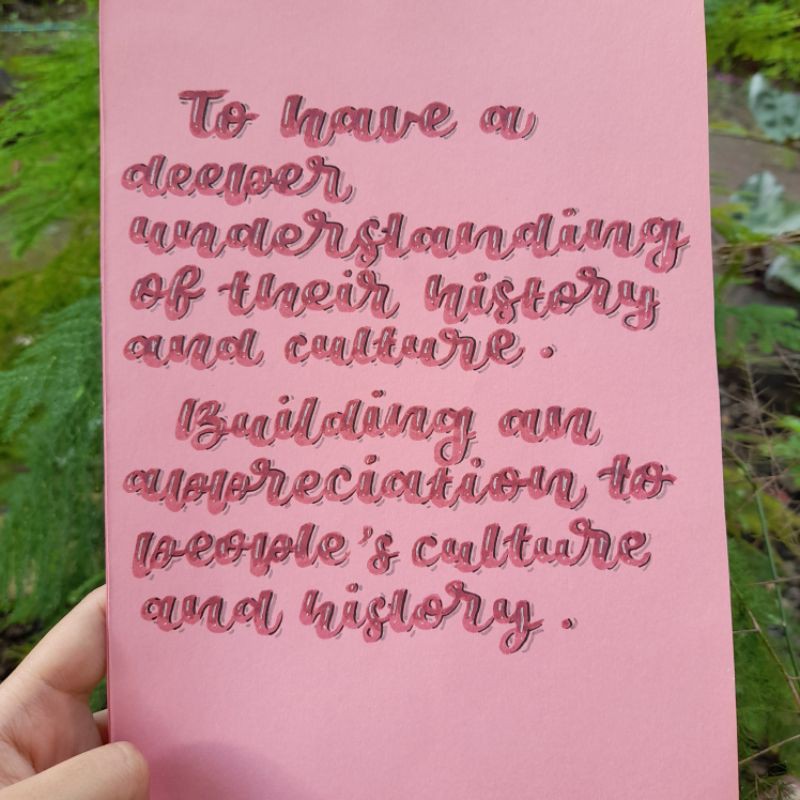 To have a
deeper
understanding
of their history
and culture.
Building an
appreciation to
people's culture
and history.